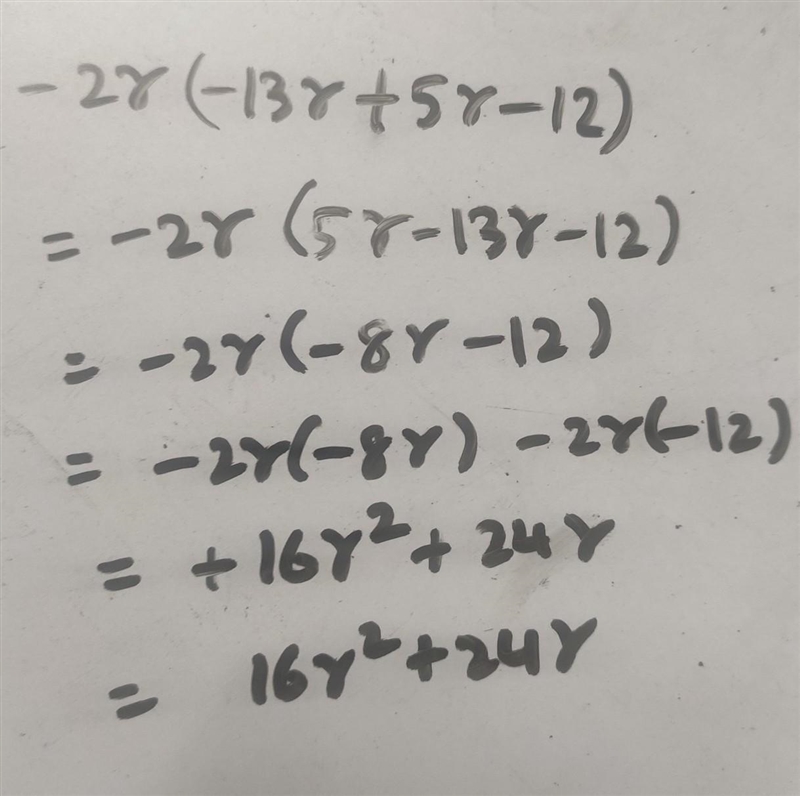 -2r(-13r+5r-12)
= -2r (5r-13r-12)
= -2r(-8r-12)
= -2r(-8r) -2r(-12)
= +16r²+24r
= 16r²+24r